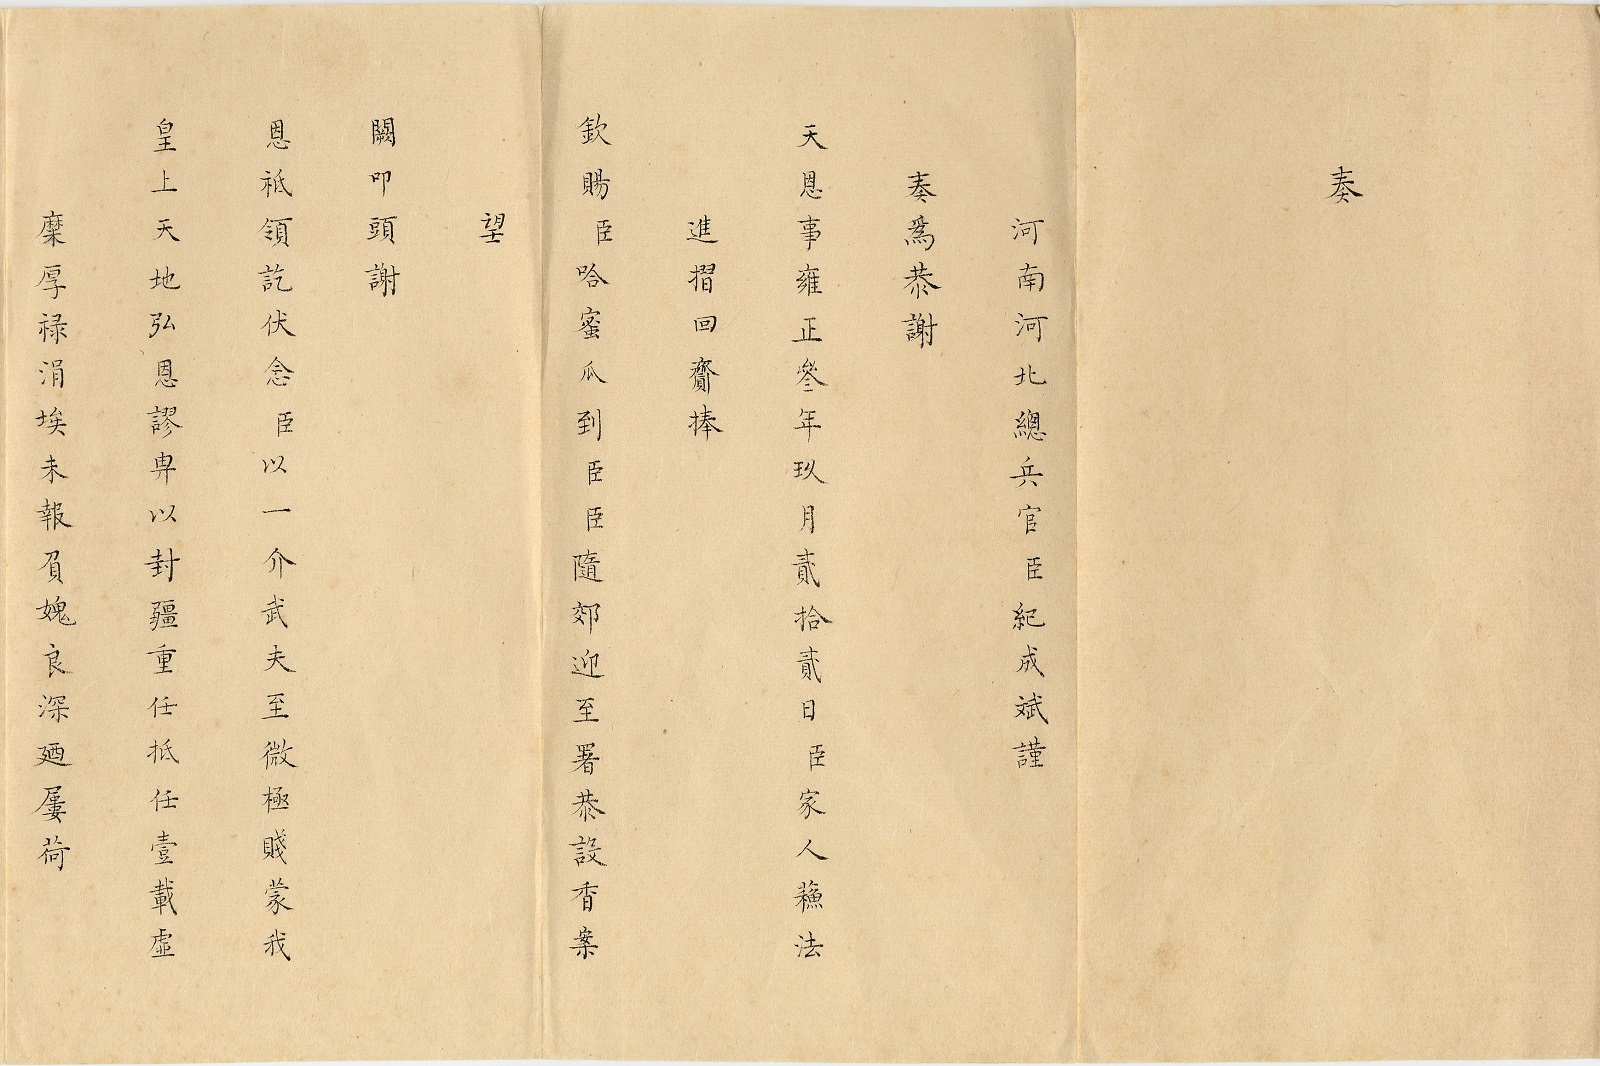 奏
河南河北總兵官臣紀成斌謹
奏爲恭謝
天恩事雍正叄年玖月貳拾貳日臣家人蘓法
進摺回賫捧
欽賜臣哈蜜瓜到臣臣隨郊迎至署恭設香案
望
闕叩頭謝
恩祗領訖伏念臣以一介武夫至微極賤蒙我
皇上天地弘恩謬畀以封疆重任抵任壹載虛
糜厚禄涓埃未報負媿良深廼屢荷